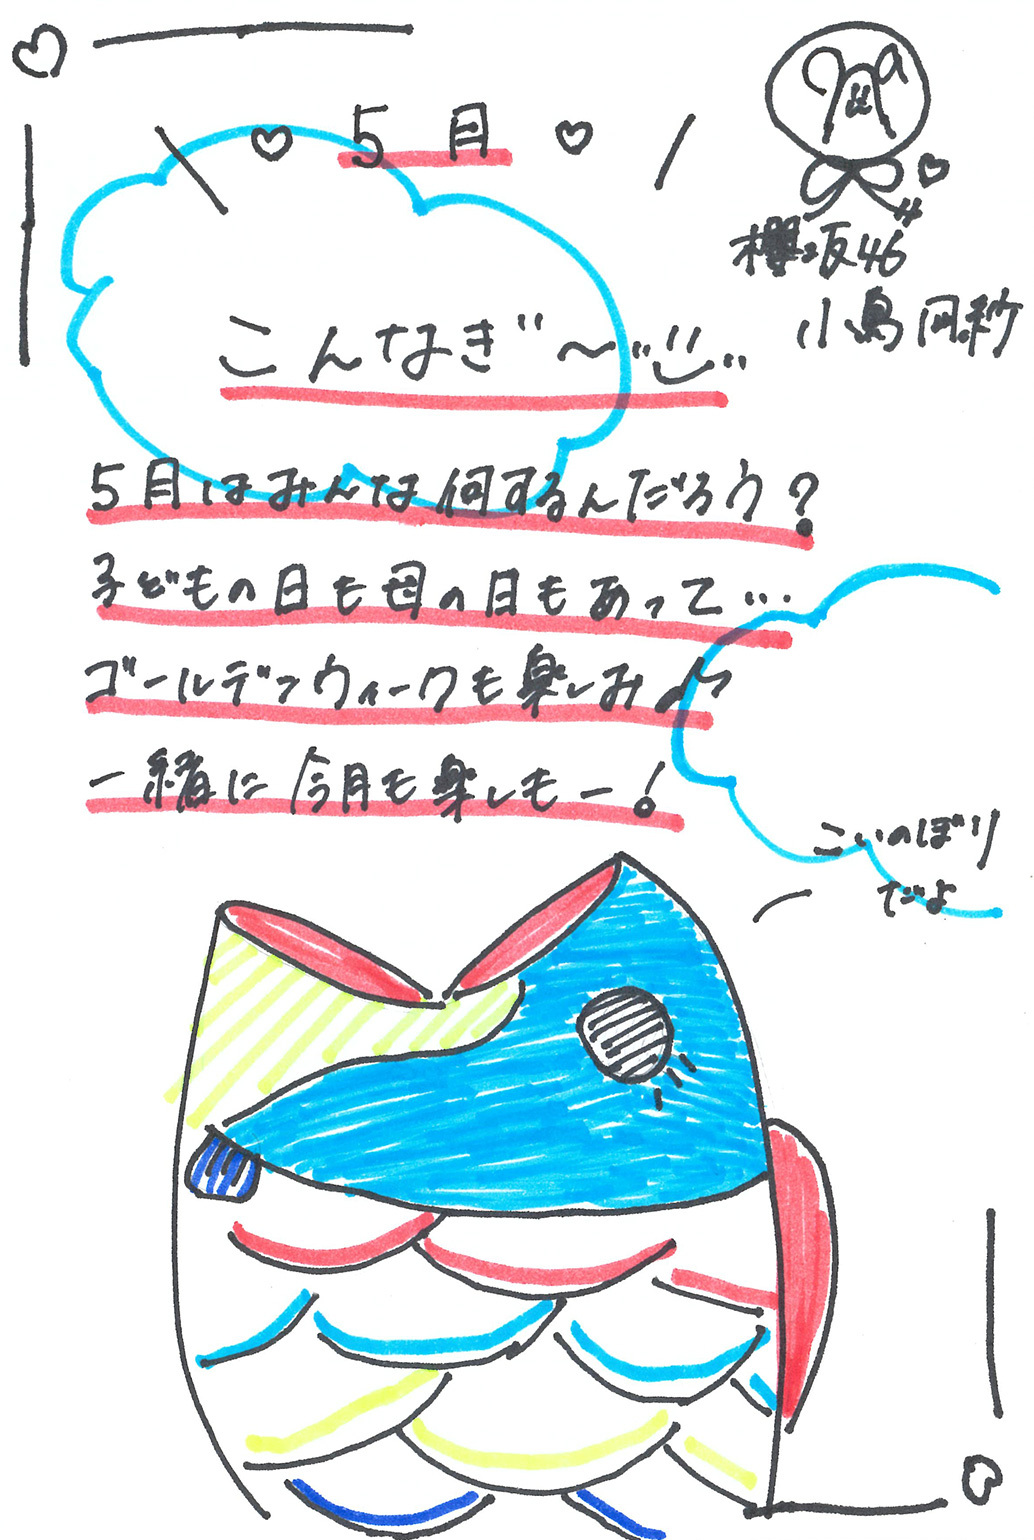 5月
櫻坂46
小島凪紗
こんなぎ〜
5月はみんな何するんだろう?
子どもの日も母の日もあって...
ゴールデンウィークも楽しみ♪
一緒に今月も楽しもー!
こいのぼり
だよ